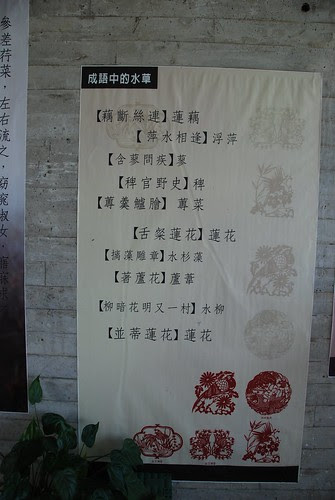 成語中的水草
【藕斷絲連】蓮藕
【萍水相逢】浮萍
【含蓼問疾】蓼
【稗官野史】稗
【蓴羹鱸膾】蓴菜
【舌粲蓮花】蓮花
【摛藻雕章】水杉藻
【著蘆花】蘆葦
【柳暗花明又一村】水柳
【並蒂蓮花】蓮花
參差荇菜，左右流之，窈窕淑女，